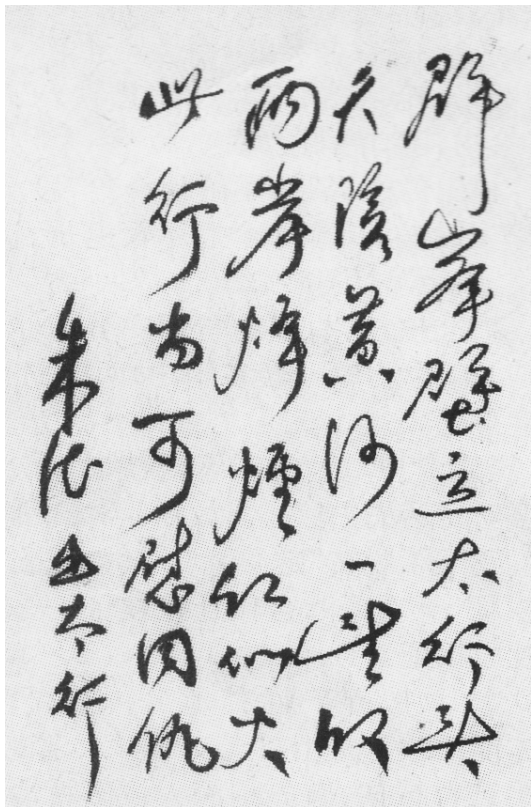 群峯壁立太行头
天险黄河一望收
两岸烽煙红似火
此行当可慰同仇
朱德 出太行